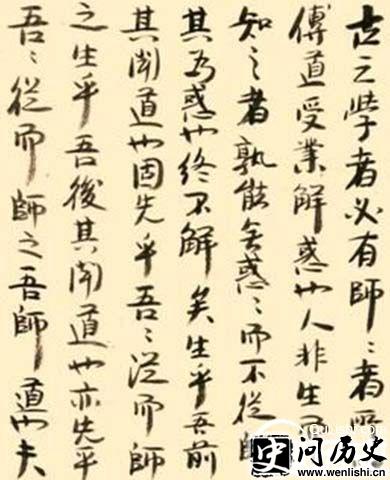 古之學者必有師〻者所
傳道受業解惑也人非生
知之者孰能無惑〻而不從師
其為惑也終不解矣生乎吾前
其聞道也固先乎吾〻從而師
之生乎吾後其聞道也亦先乎
吾〻從而師之吾師道也夫
问历史
www.wenlishi.cn